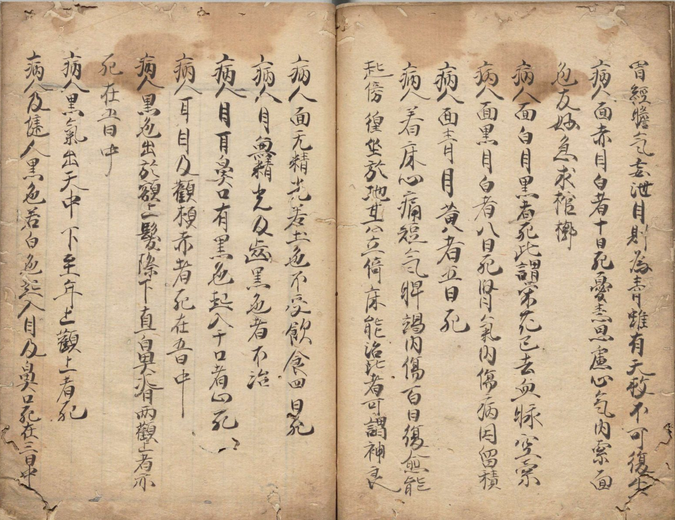 胃經膽氣妄泄目則為青雖有天救不可復生
病人面赤目白者十日死憂恚思慮心氣內索面
色反好急求棺槨
病人面白目黑者死此謂榮花已去血脉空索
病人面黑目白者八日死腎氣內傷病因留積
病人面青目黃者五日死
病人着床心痛短氣脾竭內傷百日復愈能
起傍徨坐於地其立倚床能治此者可謂神良
病人面无精光若土色不受飲食四日死
病人目無精光及齒黑色者不治
病人目耳鼻口有黑色起入于口者必死
病人耳目及顴頰赤者死在五日中
病人黑色出於額上髮際下直鼻脊兩顴上者亦
死在五日中
病人黑氣出天中下至年上顴上者死
病人及健人黑色若白色起入目及鼻口死在三日中